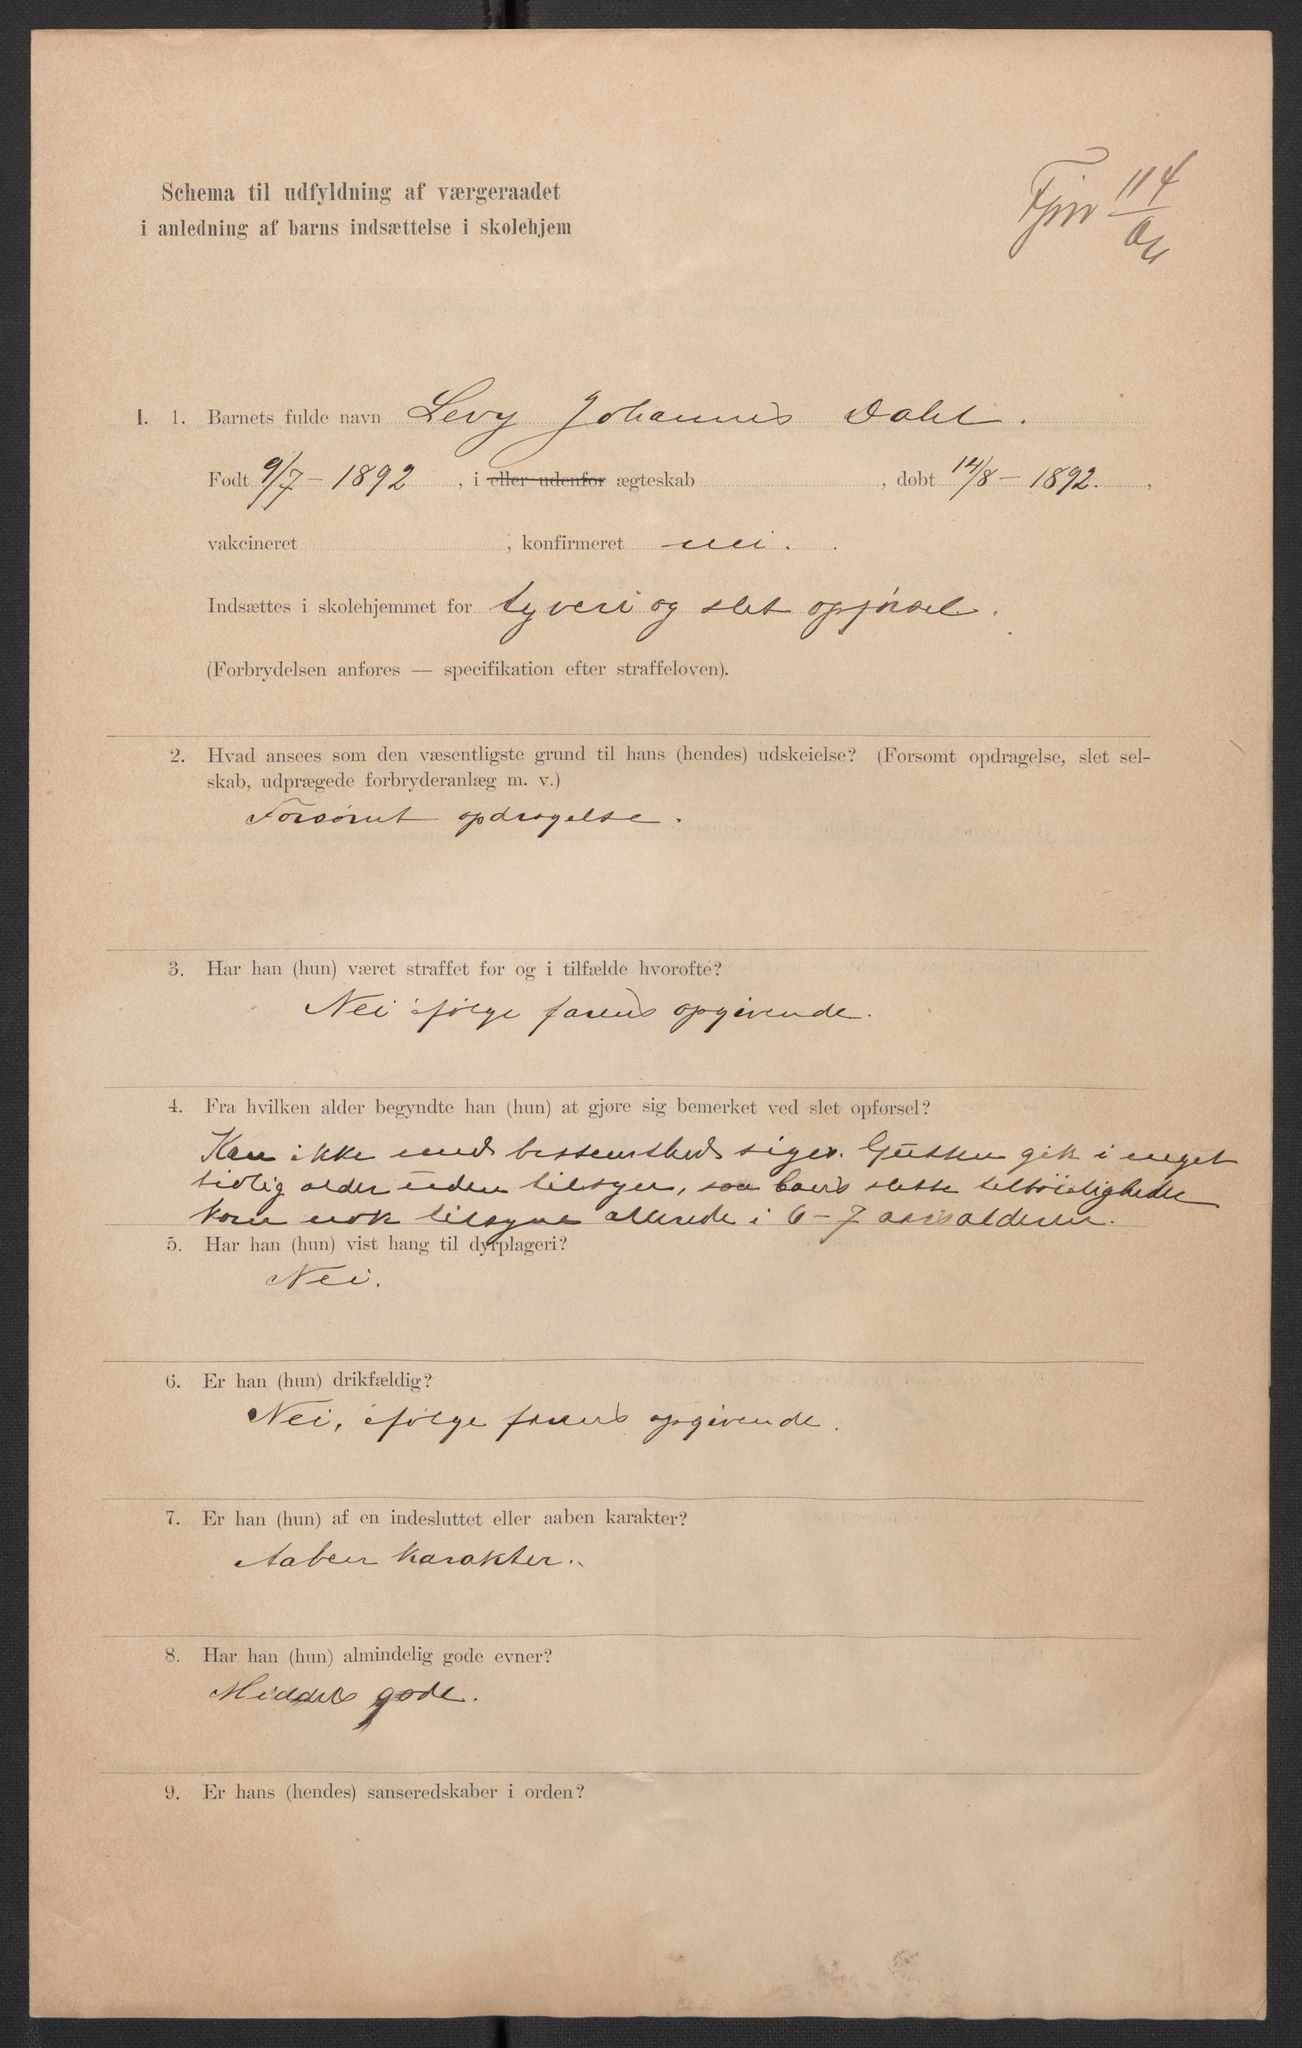 Schema til udfyldning af værgeraadet
i anledning af barns indsættelse i skolehjem
114
I. 1. Barnets fulde navn Levy Johannes Dahl.
Født 9/7 - 1892, i eller udenfor ægteskab , døbt 14/8 - 1892.,
vakcineret , konfirmeret nei.
Indsættes i skolehjemmet for tyveri og slet opførsel.
(Forbrydelsen anføres — specifikation efter straffeloven).
2. Hvad ansees som den væsentligste grund til hans (hendes) udskeielse? (Forsømt opdragelse, slet sel-
skab, udprægede forbryderanlæg m. v.)
Forsømt opdragelse.
3. Har han (hun) været straffet før og i tilfælde hvorofte?
Nei ifølge farens opgivende.
4. Fra hvilken alder begyndte han (hun) at gjøre sig bemerket ved slet opførsel?
Kan ikke med bestemthed siges. Gutten gik i meget
tidlig alder uden tilsyn, saa hans slette tilbøieligheder
kom nok tilsyne allerede i 6-7 aarsalderen.
5. Har han (hun) vist hang til dyrplageri?
Nei.
6. Er han (hun) drikfældig?
Nei, ifølge farens opgivende.
7. Er han (hun) af en indesluttet eller aaben karakter?
Aaben karakter.
8. Har han (hun) almindelig gode evner?
Middels gode.
9. Er hans (hendes) sanseredskaber i orden?